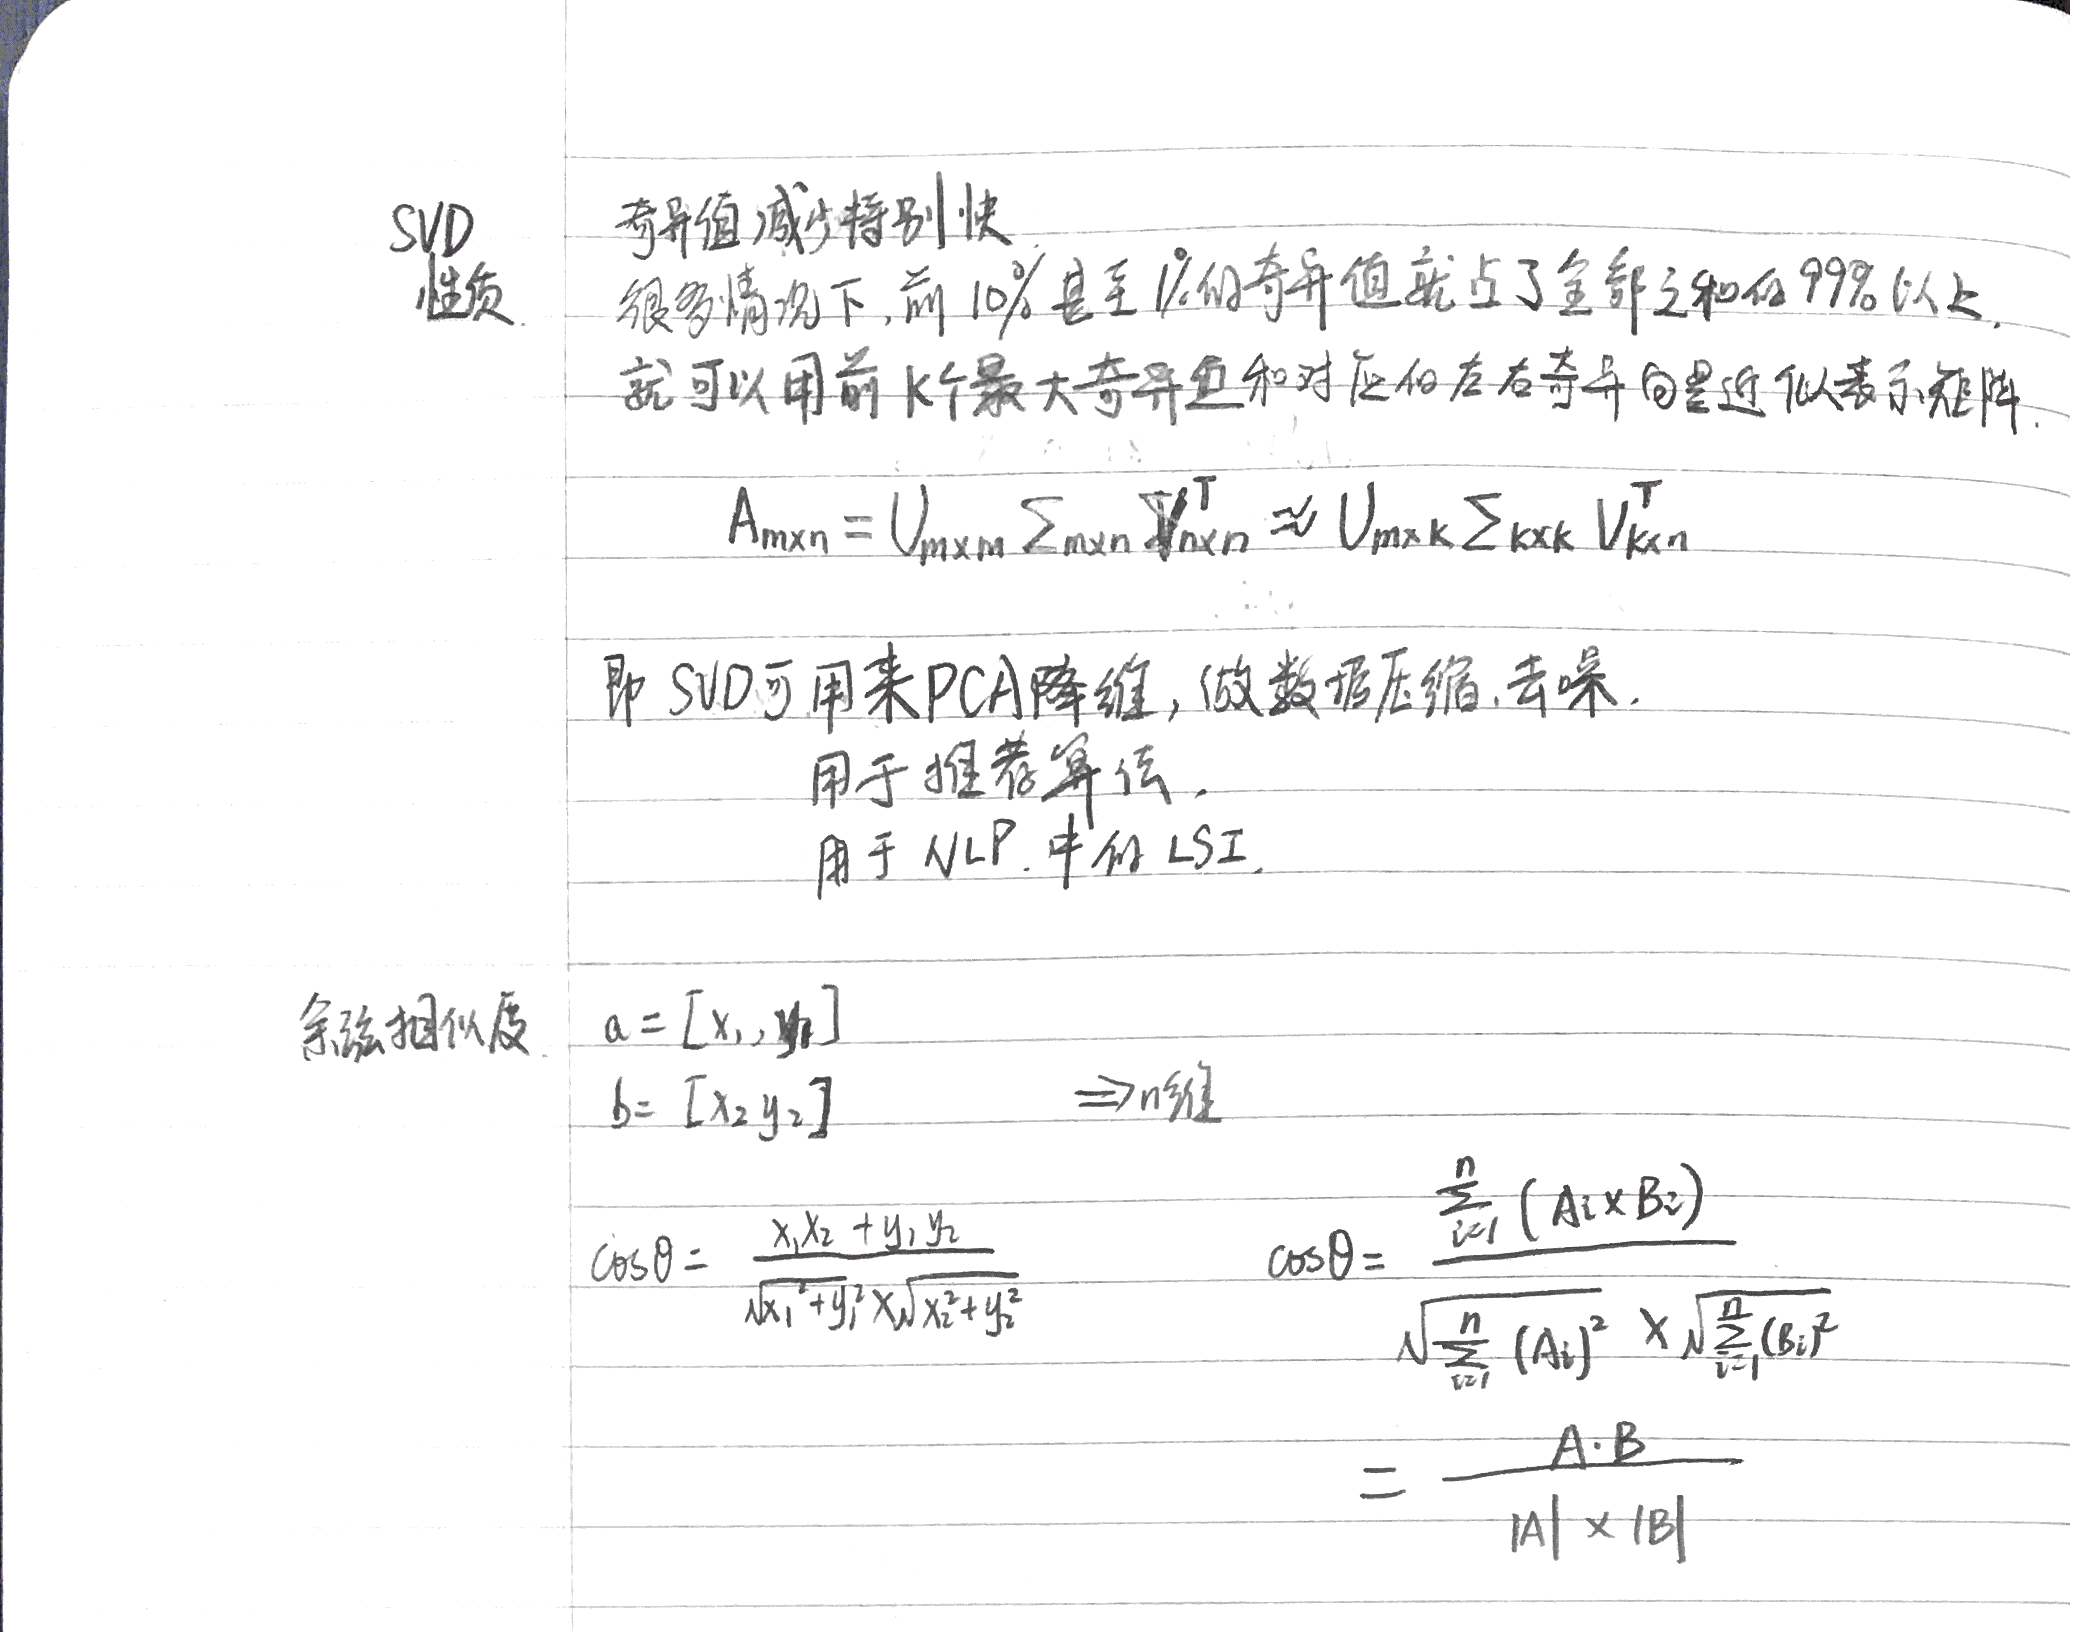 SVD 性质
奇异值减少特别快.
很多情况下,前10%甚至1%的奇异值就占了全部之和的99%以上.
就可以用前k个最大奇异值和对应的左右奇异向量近似表示矩阵.
A_{m×n} = U_{m×m} Σ_{m×n} V^T_{n×n} ≈ U_{m×k} Σ_{k×k} V^T_{k×n}
即SVD可用来PCA降维,做数据压缩、去噪.
用于推荐算法.
用于NLP.中的LSI.
余弦相似度.
a = [x₁, y₁]
b = [x₂ y₂] ⇒ n维
cosθ = (x₁x₂ + y₁y₂) / (√(x₁²+y₁²) × √(x₂²+y₂²))
cosθ = (Σ_{i=1}^{n} (Ai × Bi)) / (√(Σ_{i=1}^{n} (Ai)²) × √(Σ_{i=1}^{n} (Bi)²))
= (A·B) / (|A| × |B|)